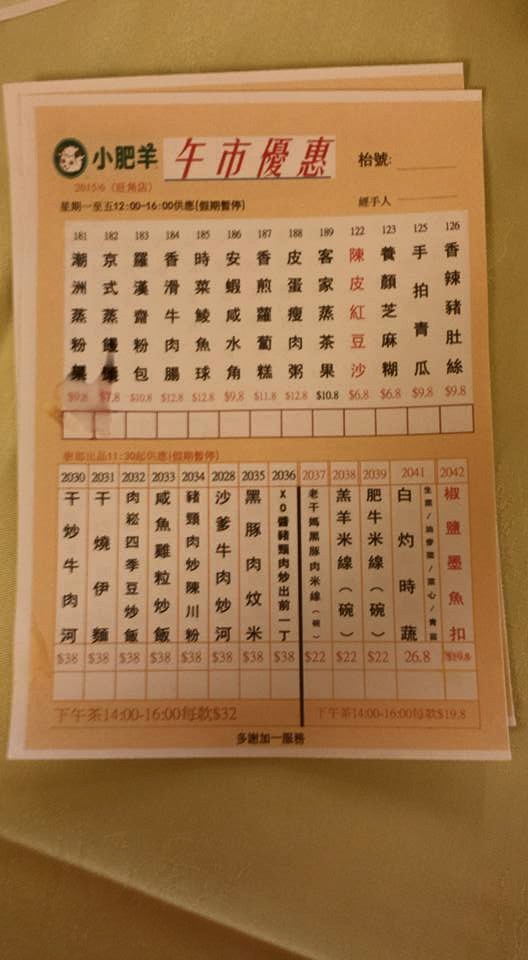 小肥羊 午市優惠 枱號:
2015/6 (旺角店)
星期一至五12:00-16:00供應(假期暫停) 經手人
181 182 183 184 185 186 187 188 189 122 123 125 126
潮洲蒸粉
京式蒸
羅漢齋粉包
香滑牛肉腸
時菜鯪魚球
安蝦咸水角
香煎蘿蔔糕
皮蛋瘦肉粥
客家蒸茶果
陳皮紅豆沙
養顏芝麻糊
手拍青瓜
香辣豬肚絲
$9.8 $7.8 $10.8 $12.8 $12.8 $9.8 $11.8 $12.8 $10.8 $6.8 $6.8 $9.8 $9.8
廚部出品11:30起供應(假期暫停)
2030 2031 2032 2033 2034 2028 2035 2036 2037 2038 2039 2041 2042
干炒牛肉河
干燒伊麵
肉崧四季豆炒飯
咸魚雞粒炒飯
豬頸肉炒陳川粉
沙爹牛肉炒河
黑豚肉炆米
XO醬豬頸肉炒出前一丁
老干媽黑豚肉米線(碗)
羔羊米線(碗)
肥牛米線(碗)
白灼時蔬
生菜/油麥菜/菜心/
椒鹽墨魚扣
$38 $38 $38 $38 $38 $38 $38 $38 $22 $22 $22 26.8 $19.8
下午茶14:00-16:00每款$32 下午茶14:00-16:00每款$19.8
多謝加一服務